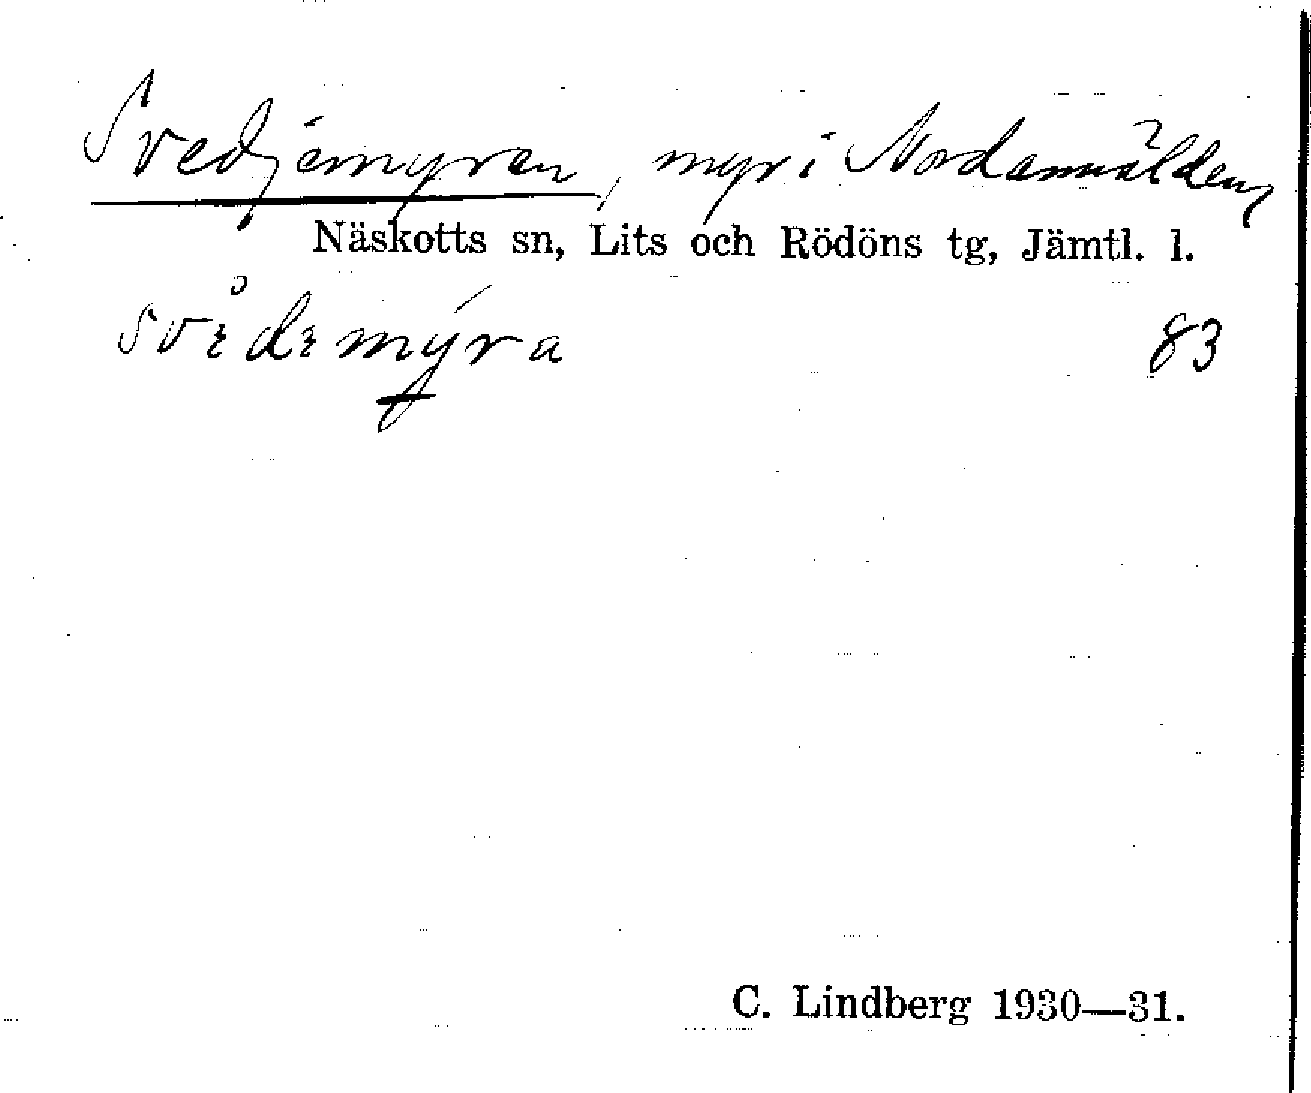 Svedjemyren, myr i Nordannälden,
Näskotts sn, Lits och Rödöns tg, Jämtl. l.
83
C. Lindberg 1930—31.